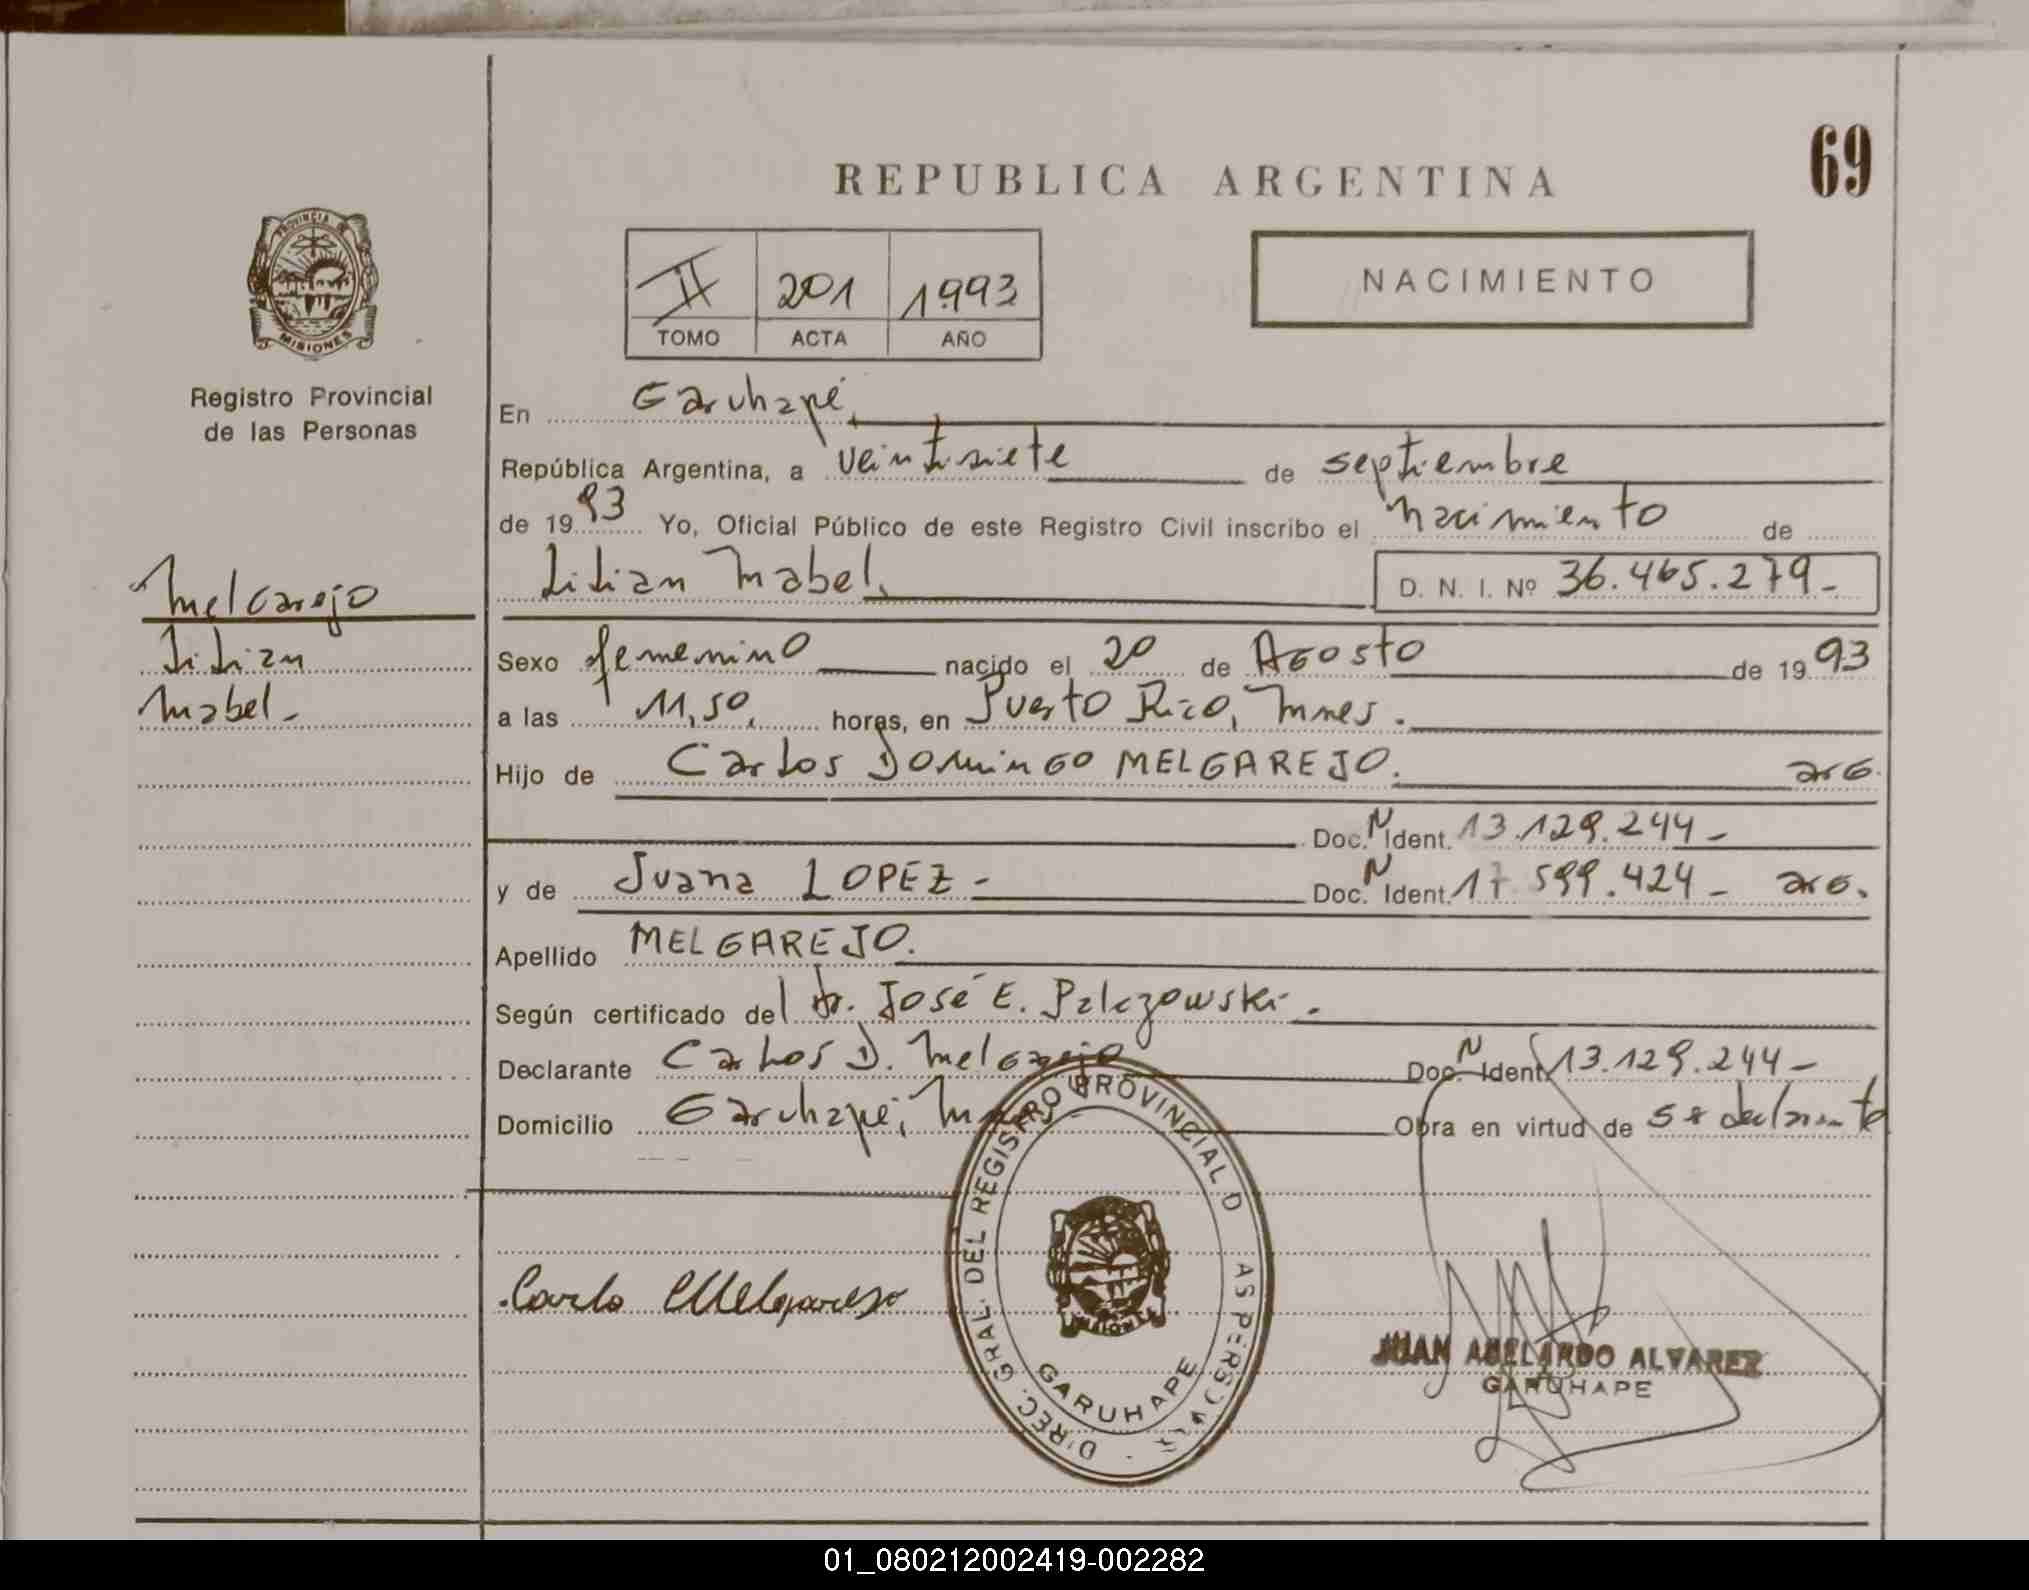 69
REPUBLICA ARGENTINA
PROVINCIA DE
MISIONES
II 201 1993
TOMO ACTA AÑO
NACIMIENTO
Registro Provincial
de las Personas
En Garuhapé,
República Argentina, a veintisiete de septiembre
de 1993 Yo, Oficial Público de este Registro Civil inscribo el nacimiento de
Lilian Mabel, D. N. I. Nº 36.465.279-
Melgarejo
Lilian
Mabel-
Sexo femenino nacido el 20 de Agosto de 1993
a las 11,50, horas, en Puerto Rico, Mnes.
Hijo de Carlos Domingo MELGAREJO. arg.
Doc. N Ident. 13.129.244-
y de Juana LOPEZ- Doc. N Ident. 17.599.424- arg.
Apellido MELGAREJO.
Según certificado del Dr. José E.
Declarante Carlos D. Melgarejo Doc. N Ident. 13.129.244-
Domicilio Garuhapé, Mnes Obra en virtud de ser declarante
Carlo Melgarejo
DIREC. GRAL. DEL REGISTRO PROVINCIAL D AS PERSONAS
MISIONES
GARUHAPE
JUAN ABELARDO ALVAREZ
GARUHAPE
01_080212002419-002282